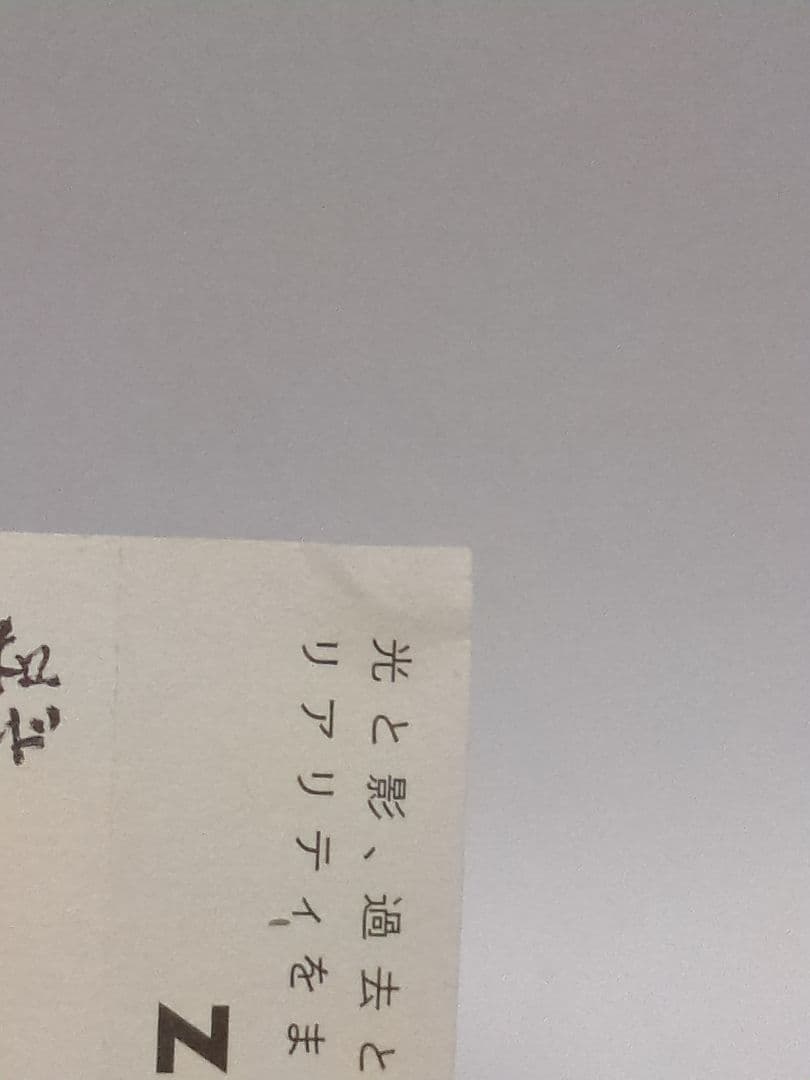 光と影、過去と
リアリティをま
N